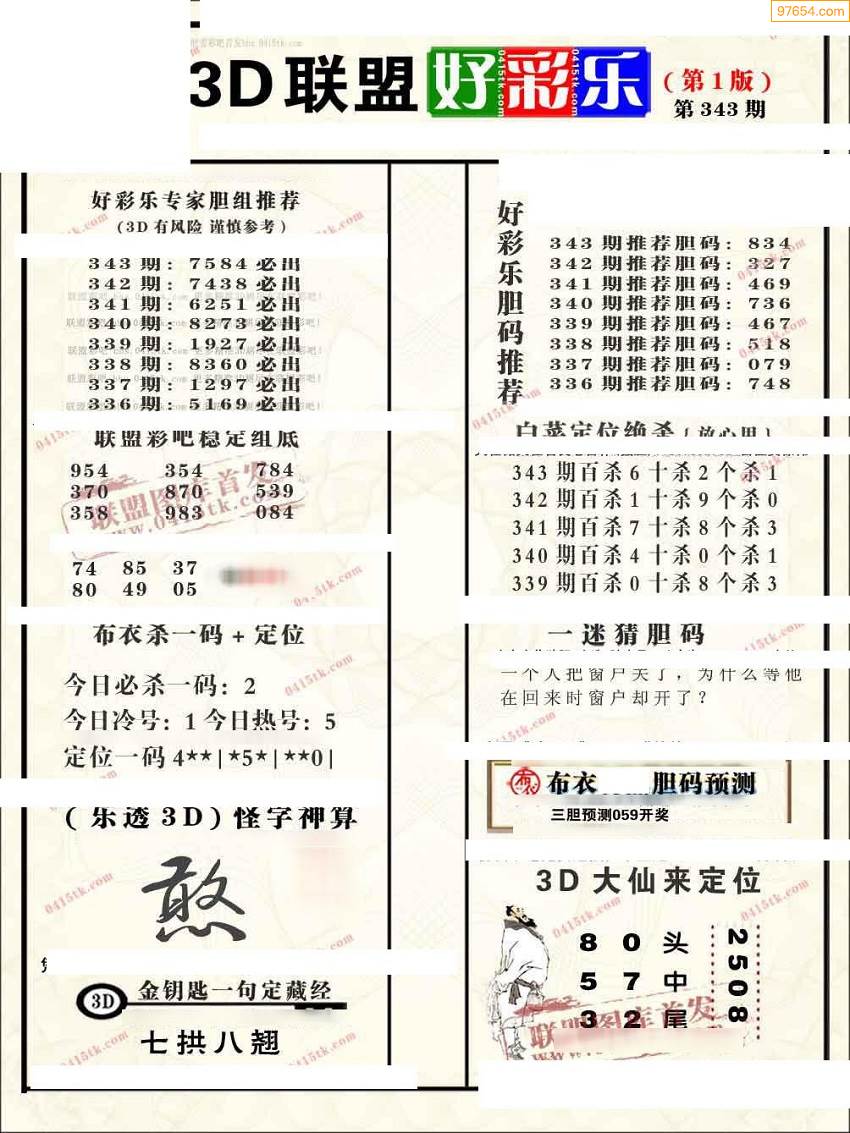 97654.com
3D联盟好彩乐
(第1版)
第343期
好彩乐专家胆组推荐
(3D有风险 谨慎参考)
343期: 7584必出
342期: 7438必出
341期: 6251必出
340期: 8273必出
339期: 1927必出
338期: 8360必出
337期: 1297必出
336期: 5169必出
联盟彩吧稳定组底
954 354 784
370 870 539
358 983 084
74 85 37
80 49 05
布衣杀一码+定位
今日必杀一码: 2
今日冷号: 1 今日热号: 5
定位一码 4**|*5*|**0|
(乐透3D)怪字神算
憨
3D
金钥匙一句定藏经
七拱八翘
好彩乐胆码推荐
343期推荐胆码: 834
342期推荐胆码: 327
341期推荐胆码: 469
340期推荐胆码: 736
339期推荐胆码: 467
338期推荐胆码: 518
337期推荐胆码: 079
336期推荐胆码: 748
白菜定位绝杀(放心用)
343期百杀6十杀2个杀1
342期百杀1十杀9个杀0
341期百杀7十杀8个杀3
340期百杀4十杀0个杀1
339期百杀0十杀8个杀3
一迷猜胆码
一个人把窗户关了，为什么等他
在回来时窗户却开了？
布衣 胆码预测
三胆预测059开奖
3D大仙来定位
8 0 头
5 7 中
3 2 尾
2508
联盟图库首发
www.0415tk.com
0415tk.com